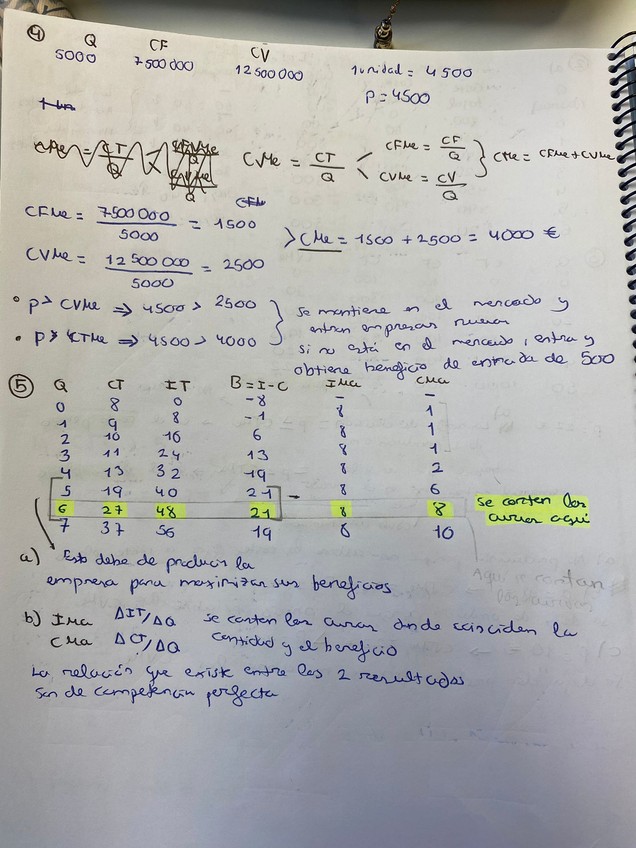 ④ Q CF CV
5000 7500000 12500000 1unidad = 4500
P = 4500
CVMe = CT/Q < CFMe = CF/Q CVMe = CV/Q } CMe = CFMe + CVMe
CFMe = 7500000/5000 = 1500
CVMe = 12500000/5000 = 2500 > CMe = 1500 + 2500 = 4000 €
• P > CVMe ⇒ 4500 > 2500 } se mantiene en el mercado y
entran empresas nuevas
• P > CTMe ⇒ 4500 > 4000 si no está en el mercado, entra y
obtiene beneficio de entrada de 500
⑤ Q CT IT B = I - C IMa CMa
0 8 0 -8 - -
1 9 8 -1 8 1
2 10 16 6 8 1
3 11 24 13 8 1
4 13 32 19 8 2
5 19 40 21 - 8 6
6 27 48 21 8 8 se cortan las
curvas aquí
7 37 56 19 8 10
a) Esto debe de producir la
empresa para maximizar sus beneficios
Aquí se cortan
las curvas
b) IMa ΔIT/ΔQ se cortan las curvas donde coinciden la
CMa ΔCT/ΔQ cantidad y el beneficio
La relación que existe entre los 2 resultados
son de competencia perfecta